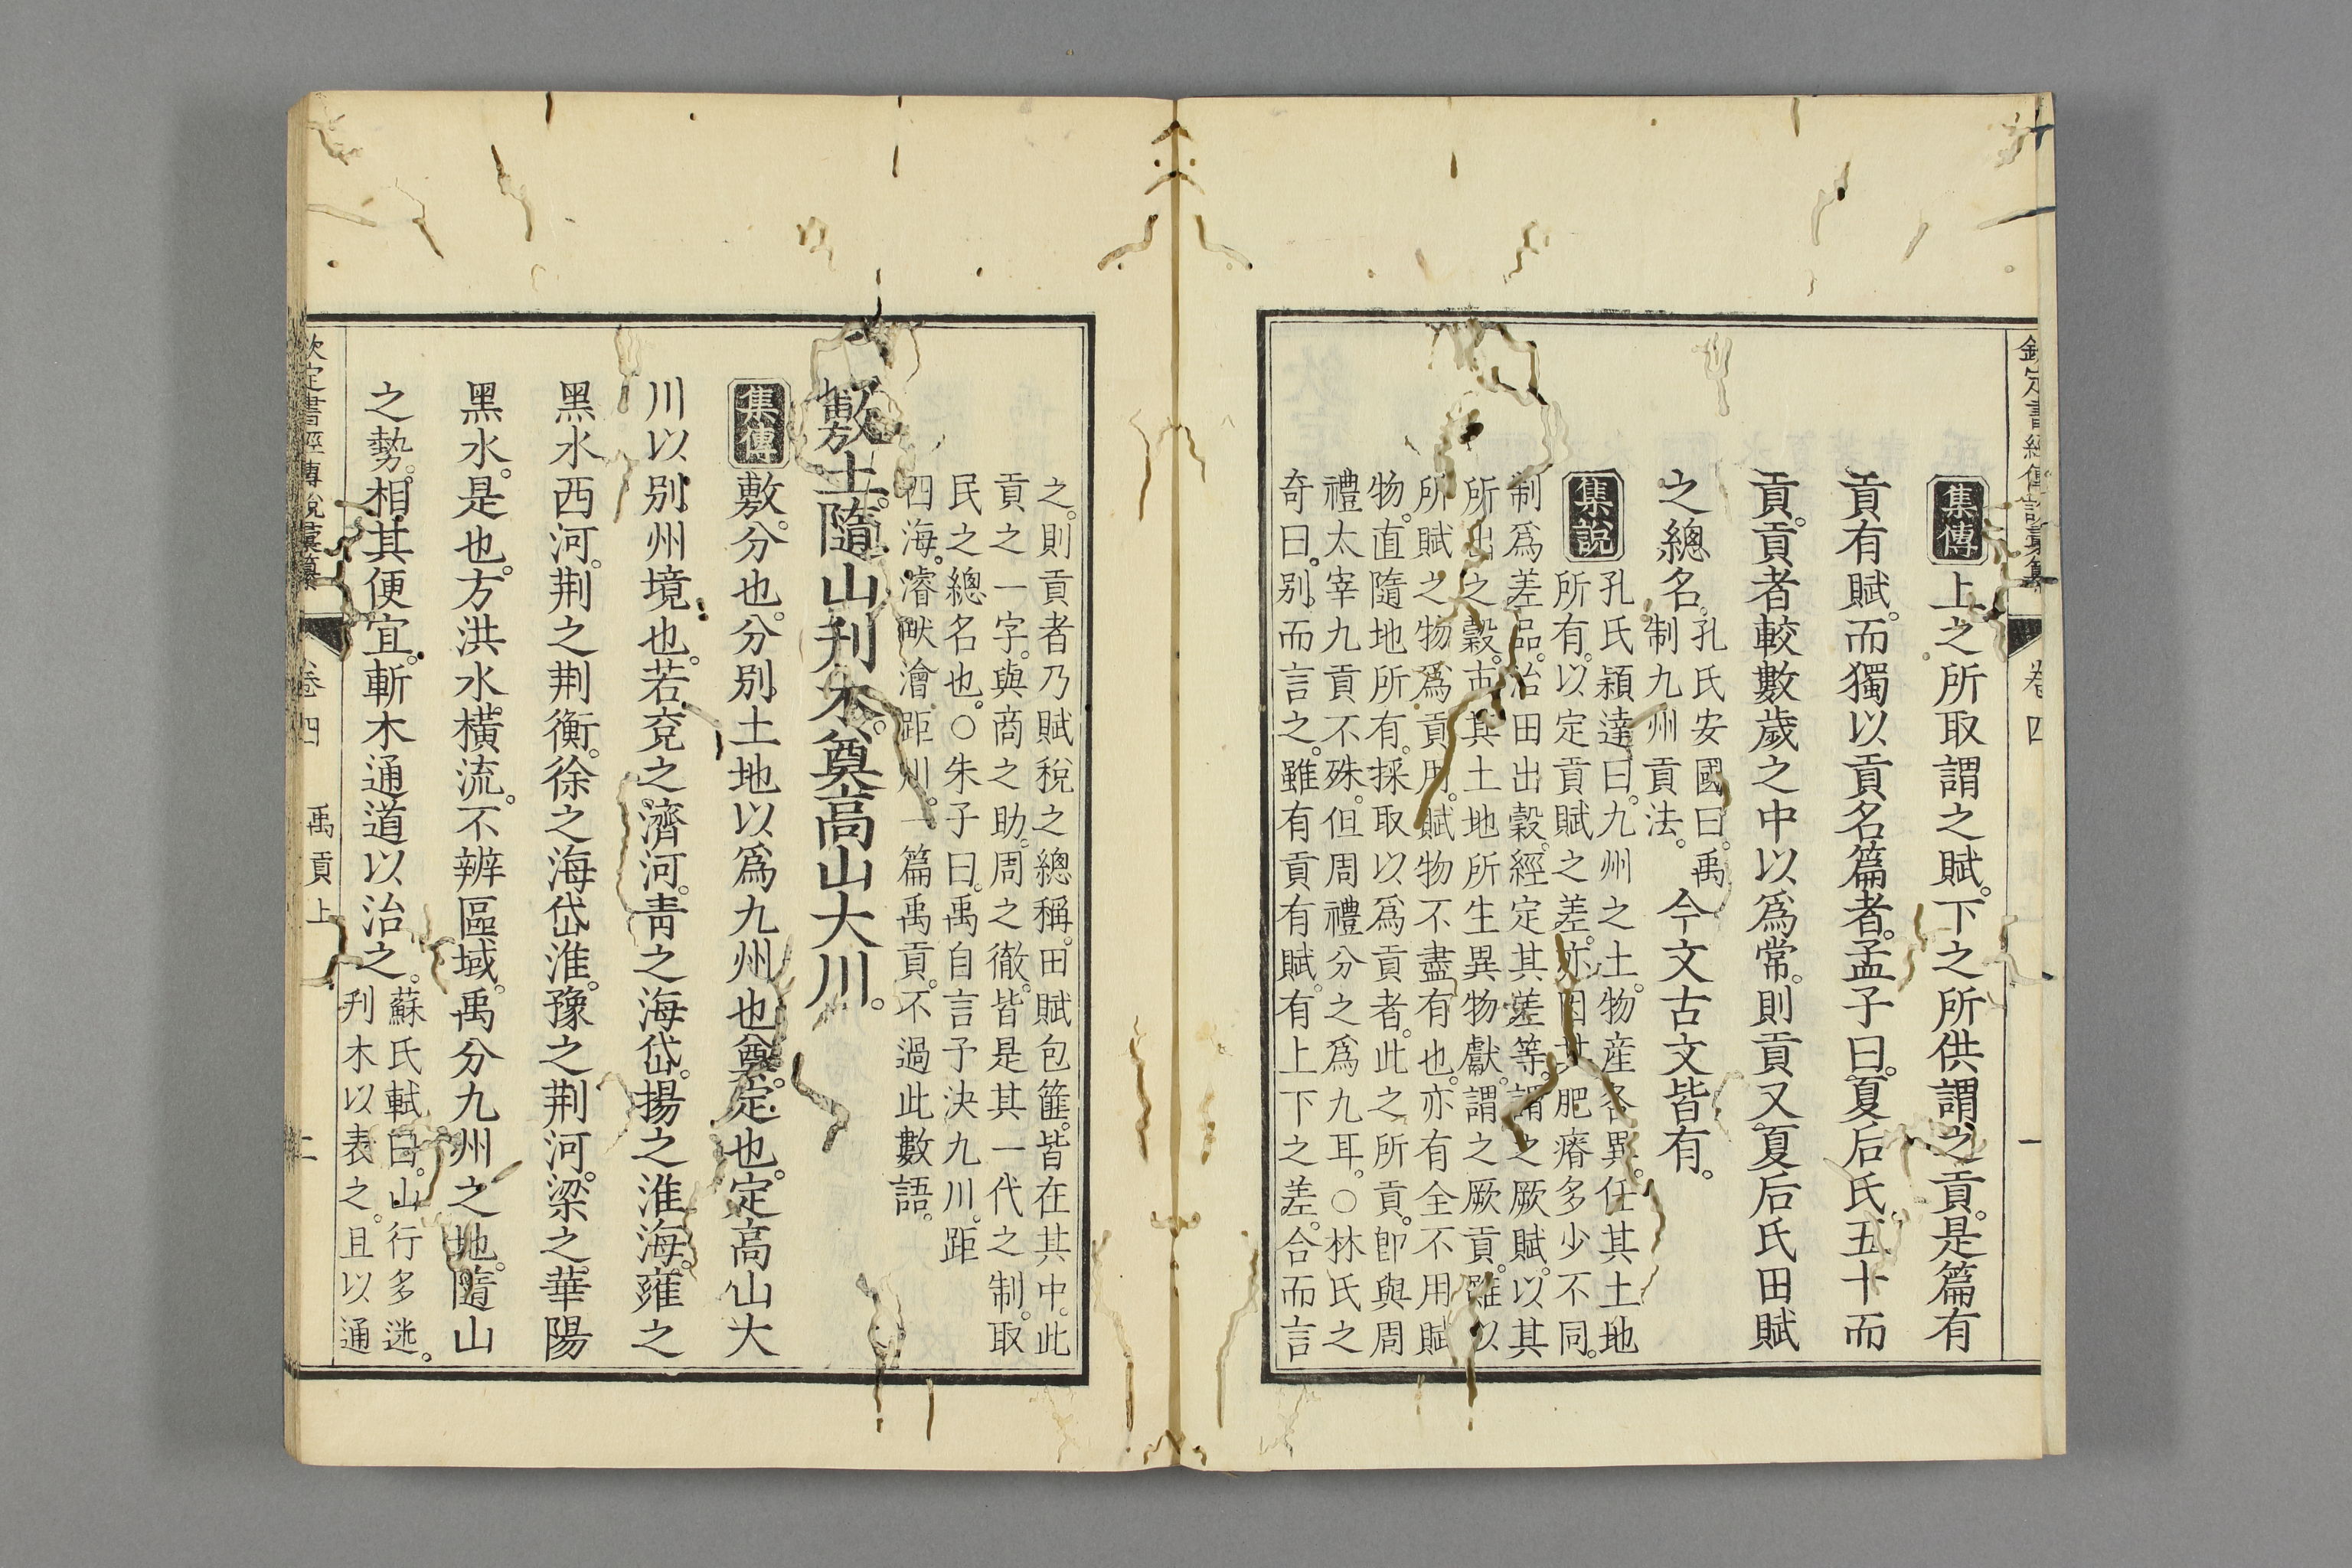 欽定書經傳說彙纂 卷四 一
集傳 上之所取謂之賦。下之所供謂之貢。是篇有
貢有賦。而獨以貢名篇者。孟子曰。夏后氏五十而
貢。貢者較數歲之中以爲常。則貢又夏后氏田賦
之總名。孔氏安國曰。禹
制九州貢法。
今文古文皆有。
集說 孔氏穎達曰。九州之土。物産各異。任其土地
所有。以定貢賦之差。亦因其肥瘠多少不同。
制爲差品。治田出穀。經定其差等。謂之厥賦。以其
所出之穀。市其土地所生異物獻。謂之厥貢。雖以
所賦之物爲貢用。賦物不盡有也。亦有全不用賦
物。直隨地所有。採取以爲貢者。此之所貢。卽與周
禮太宰九貢不殊。但周禮分之爲九耳。○林氏之
奇曰。别而言之。雖有貢有賦。有上下之差。合而言
之。則貢者乃賦稅之總稱。田賦包篚。皆在其中。此
貢之一字。與商之助。周之徹。皆是其一代之制。取
民之總名也。○朱子曰。禹自言予決九川。距
四海。濬畎澮距川。一篇禹貢。不過此數語。
敷土。隨山刋木。奠高山大川。
集傳 敷。分也。分别土地以爲九州也。奠。定也。定高山大
川以别州境也。若兗之濟河。靑之海岱。揚之淮海。雍之
黑水西河。荆之荆衡。徐之海岱淮。豫之荆河。梁之華陽
黑水。是也。方洪水橫流。不辨區域。禹分九州之地。隨山
之勢。相其便宜。斬木通道以治之。蘇氏軾曰。山行多迷。
刋木以表之。且以通
欽定書經傳說彙纂 卷四 禹貢上 二